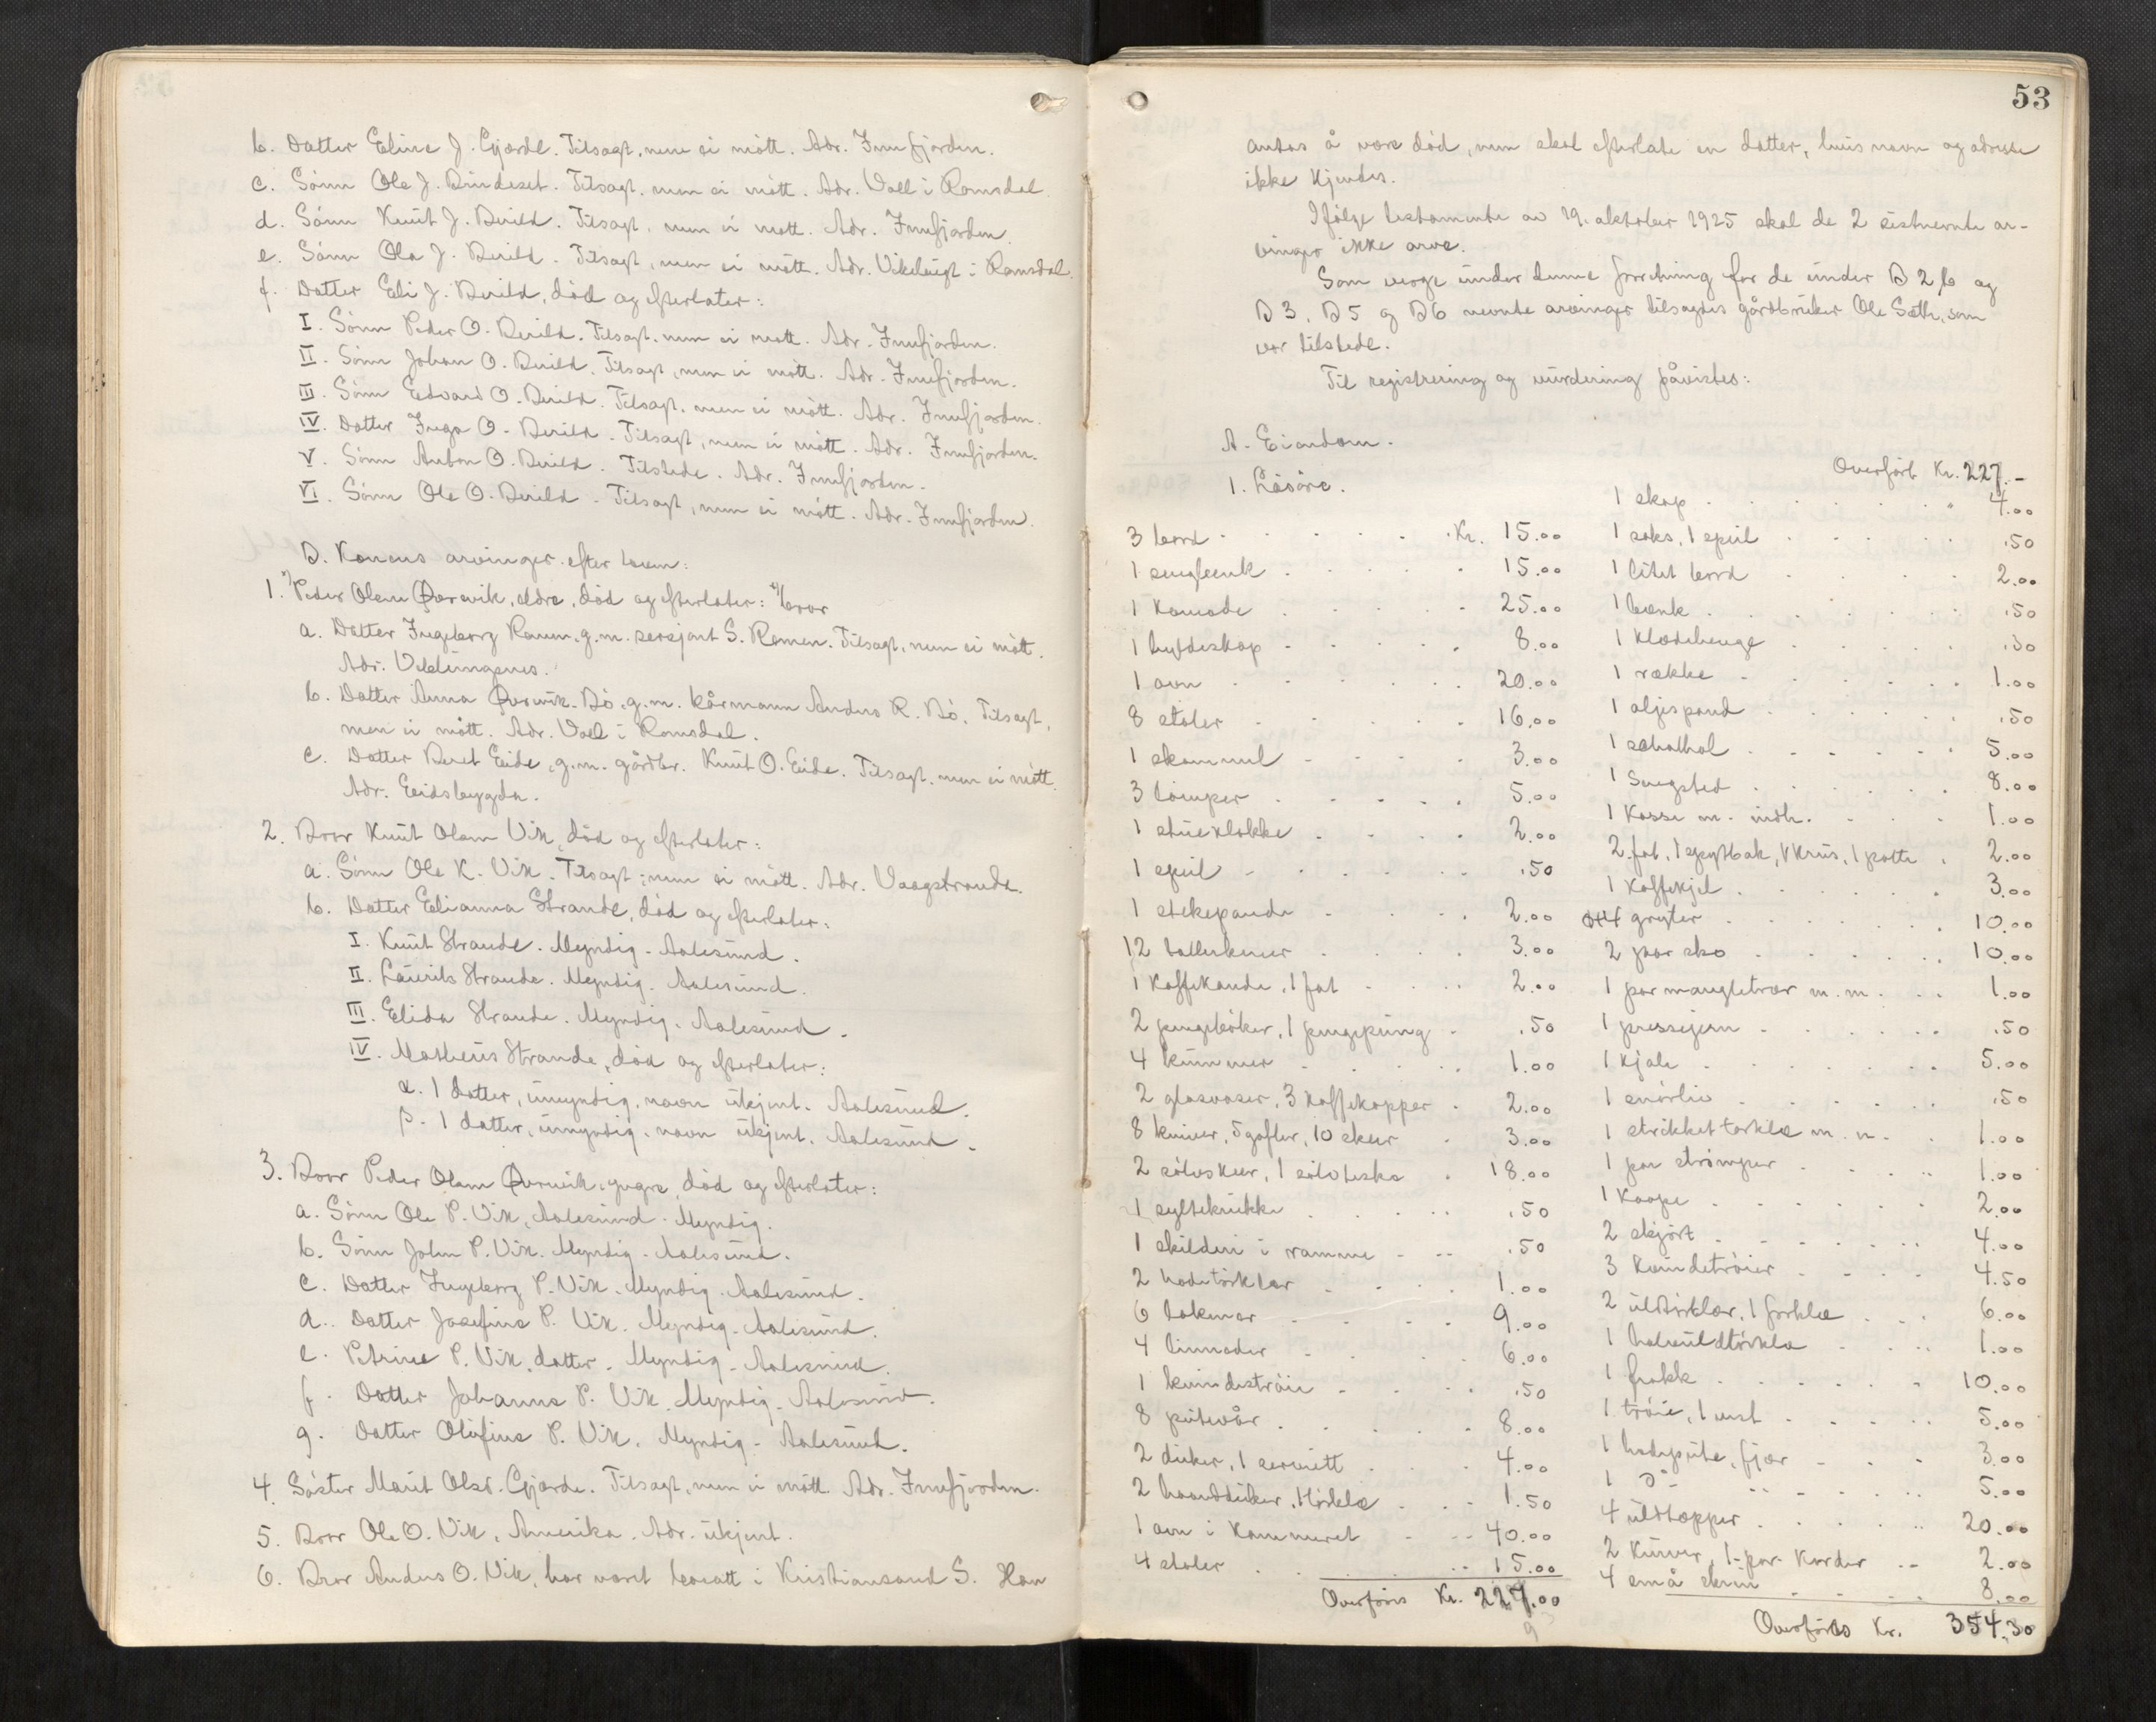 b. Datter Eline J. Gjærde. Tilsagt, men ei mött. Adr. Innfjorden.
c. Sönn Ole J. Brudeset. Tilsagt, men ei mött. Adr. Voll i Romsdal.
d. Sönn Knut J. Berild. Tilsagt, men ei mött. Adr. Innfjorden.
e. Sönn Ola J. Berild. Tilsagt, men ei mött. Adr. Vikebugt i Romsdal.
f. Datter Eli J. Berild, död og efterlater:
I. Sönn Peder O. Berild. Tilsagt, men ei mött. Adr. Innfjorden.
II. Sönn Johan O. Berild. Tilsagt, men ei mött. Adr. Innfjorden.
III. Sönn Edvard O. Berild. Tilsagt, men ei mött. Adr. Innfjorden.
IV. Datter Inga O. Berild. Tilsagt, men ei mött. Adr. Innfjorden.
V. Sönn Anton O. Berild. Tilstede. Adr. Innfjorden.
VI. Sönn Ole O. Berild. Tilsagt, men ei mött. Adr. Innfjorden.
B. Konens arvinger efter loven:
1. x) Peder Olsen Övervik, eldre, död og efterlater: x) bror
a. Datter Ingeborg Ramen, g.m. sersjant S. Ramen. Tilsagt, men ei mött.
Adr. Veblungsnes.
b. Datter Anna Övervik-Bö, g.m. kårmann Anders R. Bö. Tilsagt,
men ei mött. Adr. Voll i Romsdal.
c. Datter Beret Eide, g.m. gårdbr. Knut O. Eide. Tilsagt, men ei mött.
Adr. Eidsbygda.
2. Bror Knut Olsen Vik, död og efterlater:
a. Sönn Ole K. Vik. Tilsagt, men ei mött. Adr. Vaagstranda.
b. Datter Elianna Strande, död og efterlater:
I. Knut Strande. Myndig. Aalesund.
II. Laurits Strande. Myndig. Aalesund.
III. Elida Strande. Myndig. Aalesund.
IV. Matheus Strande, död og efterlater:
α. 1 datter, umyndig, navn ukjent. Aalesund.
β. 1 datter, umyndig, navn ukjent. Aalesund.
3. Bror Peder Olsen Övervik, yngre, död og efterlater:
a. Sönn Ole P. Vik, Aalesund. Myndig.
b. Sönn John P. Vik. Myndig. Aalesund.
c. Datter Ingeborg P. Vik. Myndig. Aalesund.
d. Datter Josefine P. Vik. Myndig. Aalesund.
e. Petrine P. Vik, datter. Myndig. Aalesund.
f. Datter Johanne P. Vik. Myndig. Aalesund.
g. Datter Olufine P. Vik. Myndig. Aalesund.
4. Söster Marit Olsd. Gjærde. Tilsagt, men ei mött. Adr. Innfjorden.
5. Bror Ole O. Vik, Amerika. Adr. ukjent.
6. Bror Anders O. Vik, har vært bosatt i Kristiansand S. Han
53
antas å være död, men skal efterlate en datter, huis navn og adresse
ikke kjendes.
Ifölge testamente av 19. oktober 1925 skal de 2 sistnevnte ar-
vinger ikke arve.
Som verge under denne forretning for de under B 2 b og
B 3, B 5 og B 6 nevnte arvinger tilsagdes gårdbruker Ole Sæth, som
var tilstede.
Til registrering og vurdering påvistes:
A. Eiendom.
1. Lösöre.
3 bord . . . Kr. 15.00
1 sengbenk . . . 15.00
1 komode . . . 25.00
1 hyldeskap . . . 8.00
1 ovn . . . 20.00
8 stoler . . . 16.00
1 skammel . . . 3.00
3 lamper . . . 5.00
1 stueklokke . . . 2.00
1 speil . . . .50
1 stekepande . . . 2.00
12 tallerkener . . . 3.00
1 kaffekande, 1 fat . . . 2.00
2 pengebøker, 1 pengepung . .50
4 kummer . . . 1.00
2 glasvaser, 3 kaffekopper . 2.00
8 kniver, 5 gafler, 10 skeer . 3.00
2 sölvskeer, 1 sölvteske . 18.00
1 syltekrukke . . . .50
1 skilderi i ramme . . . .50
2 hodetörklær . . . 1.00
6 lakener . . . 9.00
4 linneder . . . 6.00
1 kvindetröie . . . .50
8 putevår . . . 8.00
2 duker, 1 serviett . . . 4.00
2 haandduker, 1 törklæ . . . 1.50
1 ovn i kammeret . . . 40.00
4 stoler . . . 15.00
Overföres Kr. 227.00
Overfört Kr. 227.-
1 skap . . . " 4.00
1 saks, 1 speil . . . .50
1 litet bord . . . 2.00
1 benk . . . .50
1 klædehenge . . . .30
1 række . . . 1.00
1 oljespand . . . .50
1 schathol . . . 5.00
1 Sengsted . . . 8.00
1 kasse m. indh. . . . 1.00
2 fat, 1 spytbak, 1 krus, 1 potte . 2.00
1 kaffekjel . . . 3.00
4 gryter . . . 10.00
2 par sko . . . 10.00
1 par mangletrær m.m. . . . 1.00
1 pressejern . . . .50
1 kjole . . . 5.00
1 snörliv . . . .50
1 strikket törklæ m.m. . . 1.00
1 par strömper . . . 1.00
1 kaape . . . 2.00
2 skjört . . . 4.00
3 kvindetröier . . . 4.50
2 uldtörklær, 1 forklæ . . . 6.00
1 halvuldtörklæ . . . 1.00
1 frakk . . . 10.00
1 tröie, 1 vest . . . 5.00
1 hodepute, fjær . . . 3.00
1 do . . . 5.00
4 uldtepper . . . 20.00
2 kurver, 1 par karder . . 2.00
4 små skrin . . . 8.00
Overföres Kr. 354.30